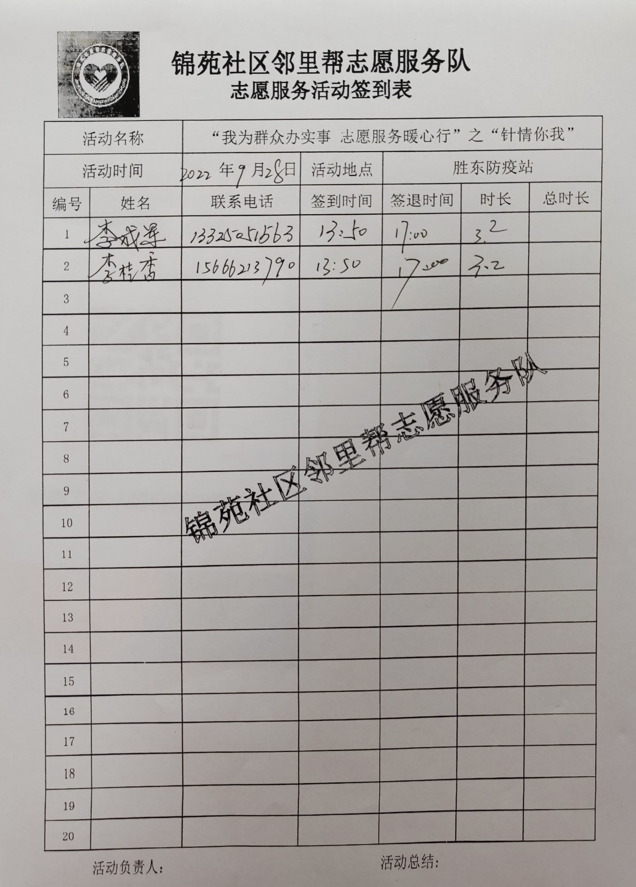 锦苑社区邻里帮志愿服务队
志愿服务活动签到表
活动名称 “我为群众办实事 志愿服务暖心行”之“针情你我”
活动时间 2022年9月28日 活动地点 胜东防疫站
编号 姓名 联系电话 签到时间 签退时间 时长 总时长
1 李成 13325051563 13:50 17:00 3.2
2 李桂香 15666213790 13:50 17:00 3.2
3
4
5
6
7
8
9
10
11
12
13
14
15
16
17
18
19
20
锦苑社区邻里帮志愿服务队
活动负责人： 活动总结：